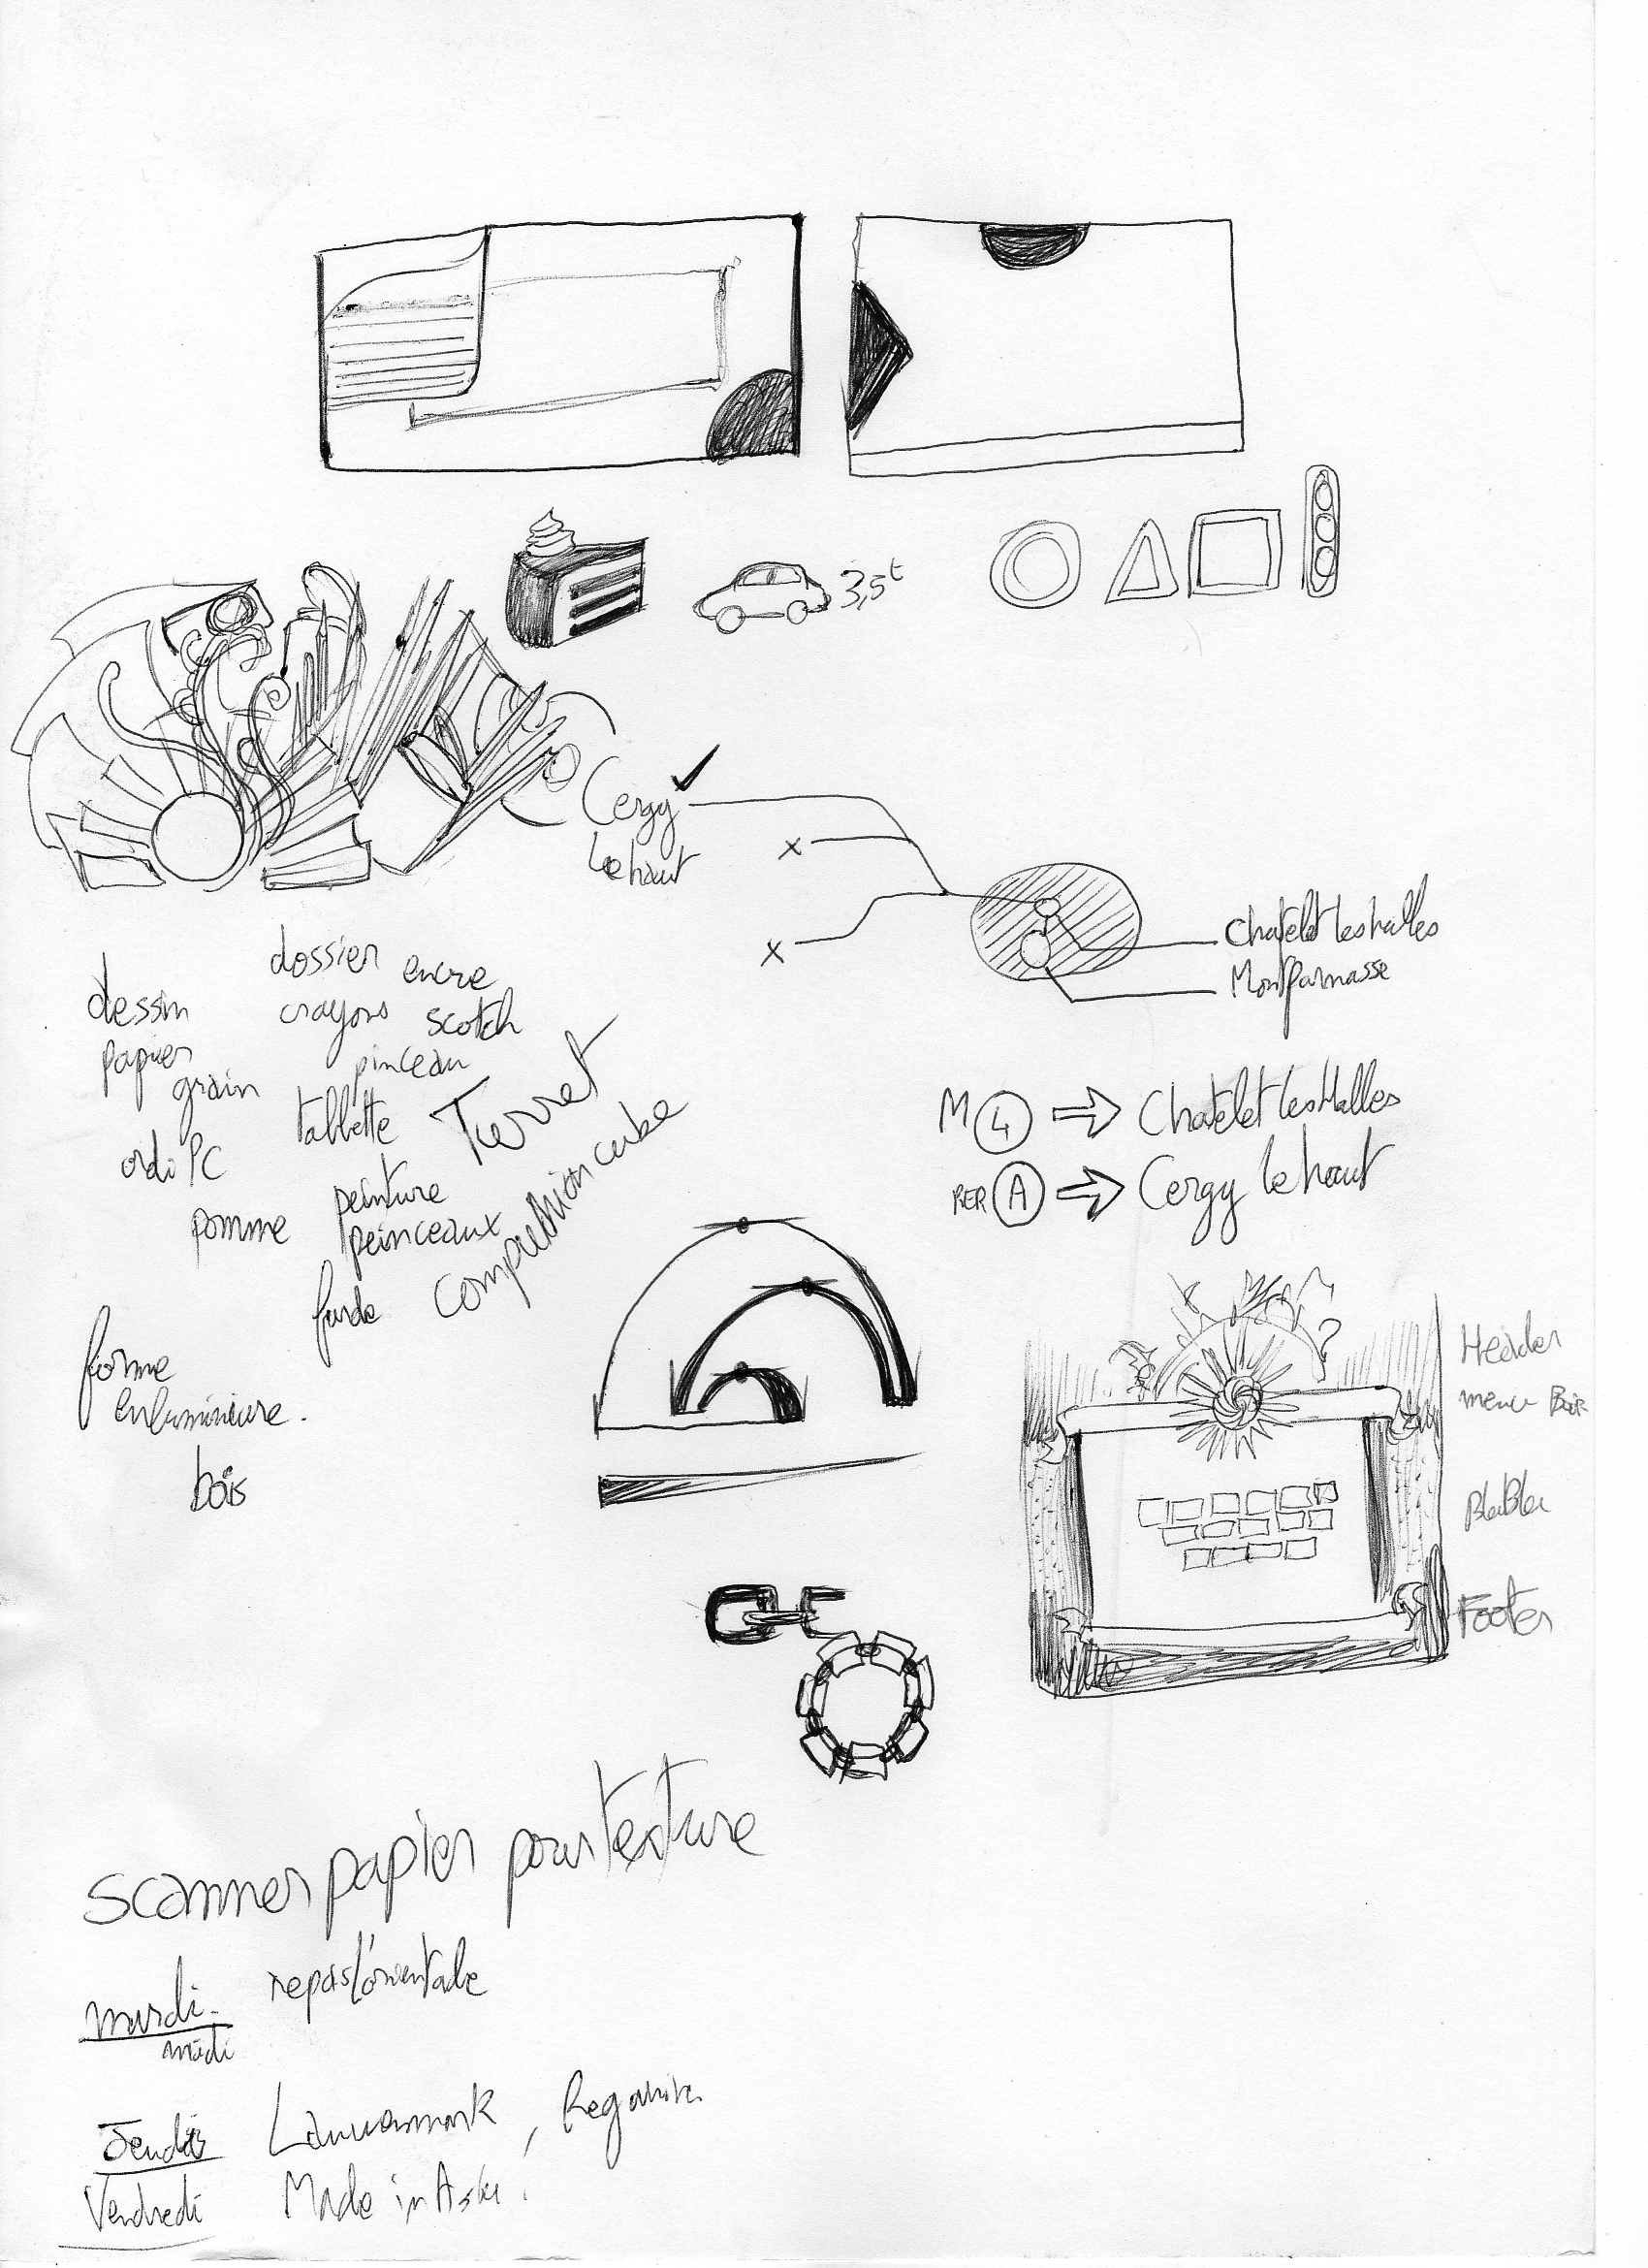 3,5t
Cergy
le haut
Chatelet les halles
Montparnasse
dossier
encre
dessin
crayons
scotch
papier
pinceau
grain
tablette
Tierret
ordi PC
peinture
pomme
peinceaux
compression cube
forme
enluminure.
bois
M 4 ⇒ Chatelet Les Halles
RER A ⇒ Cergy le haut
?
Header
menu Bar
BlaBla
Footer
scanner papier pour texture
mardi
midi
Jeudi
Vendredi
Made in Asie.